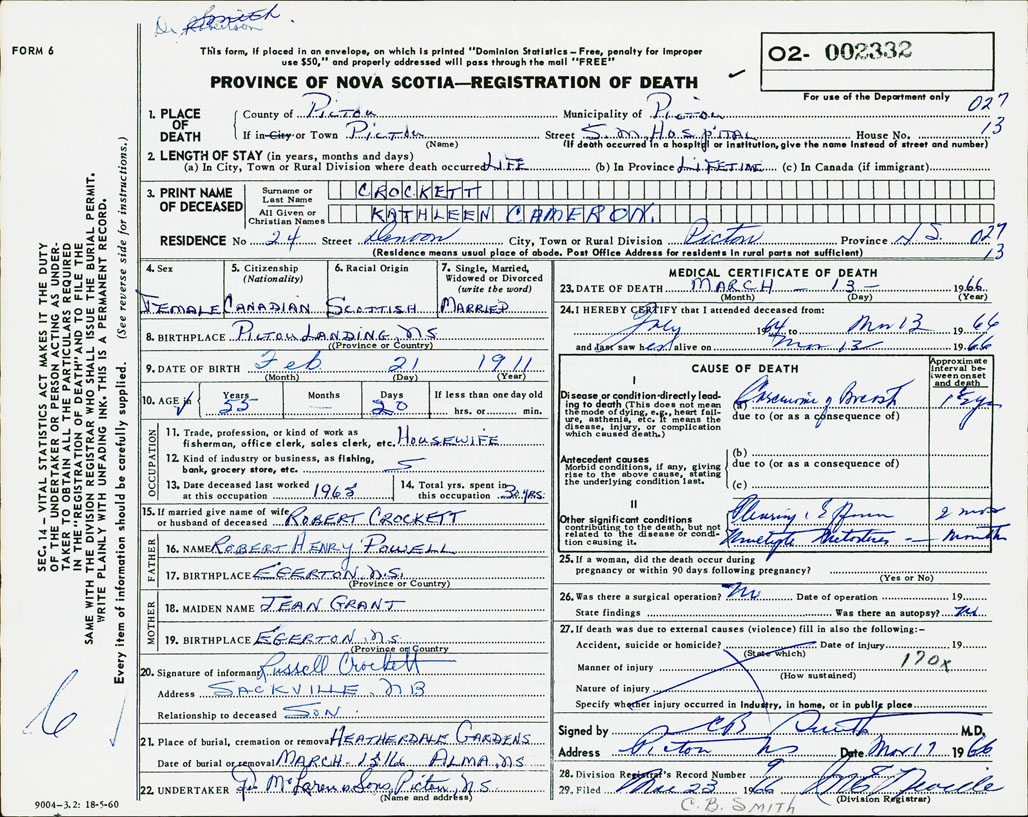 Dr. Smith.
FORM 6
This form, if placed in an envelope, on which is printed "Dominion Statistics – Free, penalty for improper
use $50," and properly addressed will pass through the mail "FREE"
O2- 002332
PROVINCE OF NOVA SCOTIA—REGISTRATION OF DEATH
For use of the Department only
1. PLACE OF DEATH County of Pictou Municipality of Pictou 027
If in City or Town Pictou Street S. M. Hospital House No. 13
(Name) (If death occurred in a hospital or institution, give the name instead of street and number)
2. LENGTH OF STAY (in years, months and days)
(a) In City, Town or Rural Division where death occurred LIFE (b) In Province LIFETIME (c) In Canada (if immigrant)
3. PRINT NAME OF DECEASED Surname or Last Name CROCKETT
All Given or Christian Names KATHLEEN CAMERON.
RESIDENCE No 24 Street Denoon City, Town or Rural Division Pictou Province N.S. 027
(Residence means usual place of abode. Post Office Address for residents in rural parts not sufficient) 13
4. Sex 5. Citizenship (Nationality) 6. Racial Origin 7. Single, Married, Widowed or Divorced (write the word)
FEMALE CANADIAN SCOTTISH MARRIED
8. BIRTHPLACE PICTOU LANDING, NS
(Province or Country)
9. DATE OF BIRTH Feb 21 1911
(Month) (Day) (Year)
10. AGE in Years Months Days If less than one day old
55 20 hrs. or min.
OCCUPATION
11. Trade, profession, or kind of work as
fisherman, office clerk, sales clerk, etc. HOUSEWIFE
12. Kind of industry or business, as fishing,
bank, grocery store, etc. 5
13. Date deceased last worked at this occupation 1965 14. Total yrs. spent in this occupation 30 YRS.
15. If married give name of wife
or husband of deceased ROBERT CROCKETT
FATHER
16. NAME ROBERT HENRY POWELL
17. BIRTHPLACE EGERTON N.S.
(Province or Country)
MOTHER
18. MAIDEN NAME JEAN GRANT
19. BIRTHPLACE EGERTON, NS
(Province or Country)
20. Signature of informant Russell Crockett
Address SACKVILLE, NB
Relationship to deceased SON.
21. Place of burial, cremation or removal HEATHERDALE GARDENS
Date of burial or removal MARCH 15/66 ALMA, NS
22. UNDERTAKER McLaren & Sons, Pictou, N.S.
(Name and address)
MEDICAL CERTIFICATE OF DEATH
23. DATE OF DEATH MARCH – 13 – 1966
(Month) (Day) (Year)
24. I HEREBY CERTIFY that I attended deceased from:
July 1964 to Mar 13 1966
and last saw her alive on Mar 13 1966
CAUSE OF DEATH Approximate interval between onset and death
I
Disease or condition directly leading to death (This does not mean the mode of dying, e.g., heart failure, asthenia, etc. It means the disease, injury, or complication which caused death.)
(a) Carcinoma of Breast
due to (or as a consequence of)
Antecedent causes
Morbid conditions, if any, giving rise to the above cause, stating the underlying condition last.
(b)
due to (or as a consequence of)
(c)
II
Other significant conditions contributing to the death, but not related to the disease or condition causing it.
Effusion 2 mos
Multiple months
25. If a woman, did the death occur during
pregnancy or within 90 days following pregnancy?
(Yes or No)
26. Was there a surgical operation? No Date of operation 19
State findings Was there an autopsy? No
27. If death was due to external causes (violence) fill in also the following:–
Accident, suicide or homicide? Date of injury 19
(State which) 170x
Manner of injury
(How sustained)
Nature of injury
Specify whether injury occurred in industry, in home, or in public place
Signed by CB Smith M.D.
Address Pictou NS Date Mar 17 1966
28. Division Registrar's Record Number 9
29. Filed Mar 23 1966
(Division Registrar)
C. B. SMITH
SEC. 14 – VITAL STATISTICS ACT MAKES IT THE DUTY
OF THE UNDERTAKER OR PERSON ACTING AS UNDER-
TAKER TO OBTAIN ALL THE PARTICULARS REQUIRED
IN THE "REGISTRATION OF DEATH" AND TO FILE THE
SAME WITH THE DIVISION REGISTRAR WHO SHALL ISSUE THE BURIAL PERMIT.
WRITE PLAINLY WITH UNFADING INK. THIS IS A PERMANENT RECORD.
Every item of information should be carefully supplied. (See reverse side for instructions.)
6
9004–3.2: 18-5-60